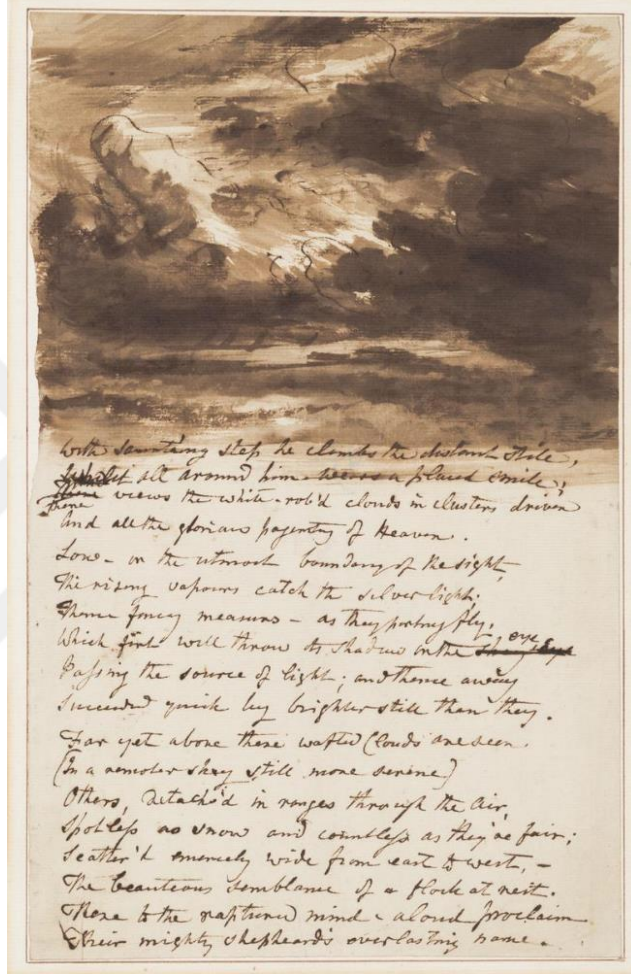 With sauntering step he climbs the distant stile,
Whilst all around him wears a placid smile;
There views the white-rob'd clouds in clusters driven
And all the glorious pagentry of Heaven.
Low - on the utmost boundary of the sight,
The rising vapours catch the silver light;
Thence fancy measures - as they parting fly,
Which first will throw its shadow on the eye,
Passing the source of light; and thence away
Succeeded quick by brighter still than they.
Far yet above these wafted Clouds are seen.
(In a remoter sky still more serene)
Others, detach'd in ranges through the air,
Spotless as snow and countless as they're fair;
Scatter'd imensely wide from east to west, -
The beauteous semblance of a flock at rest.
These to the raptured mind - aloud proclaim
Their mighty shepheard's everlasting name.